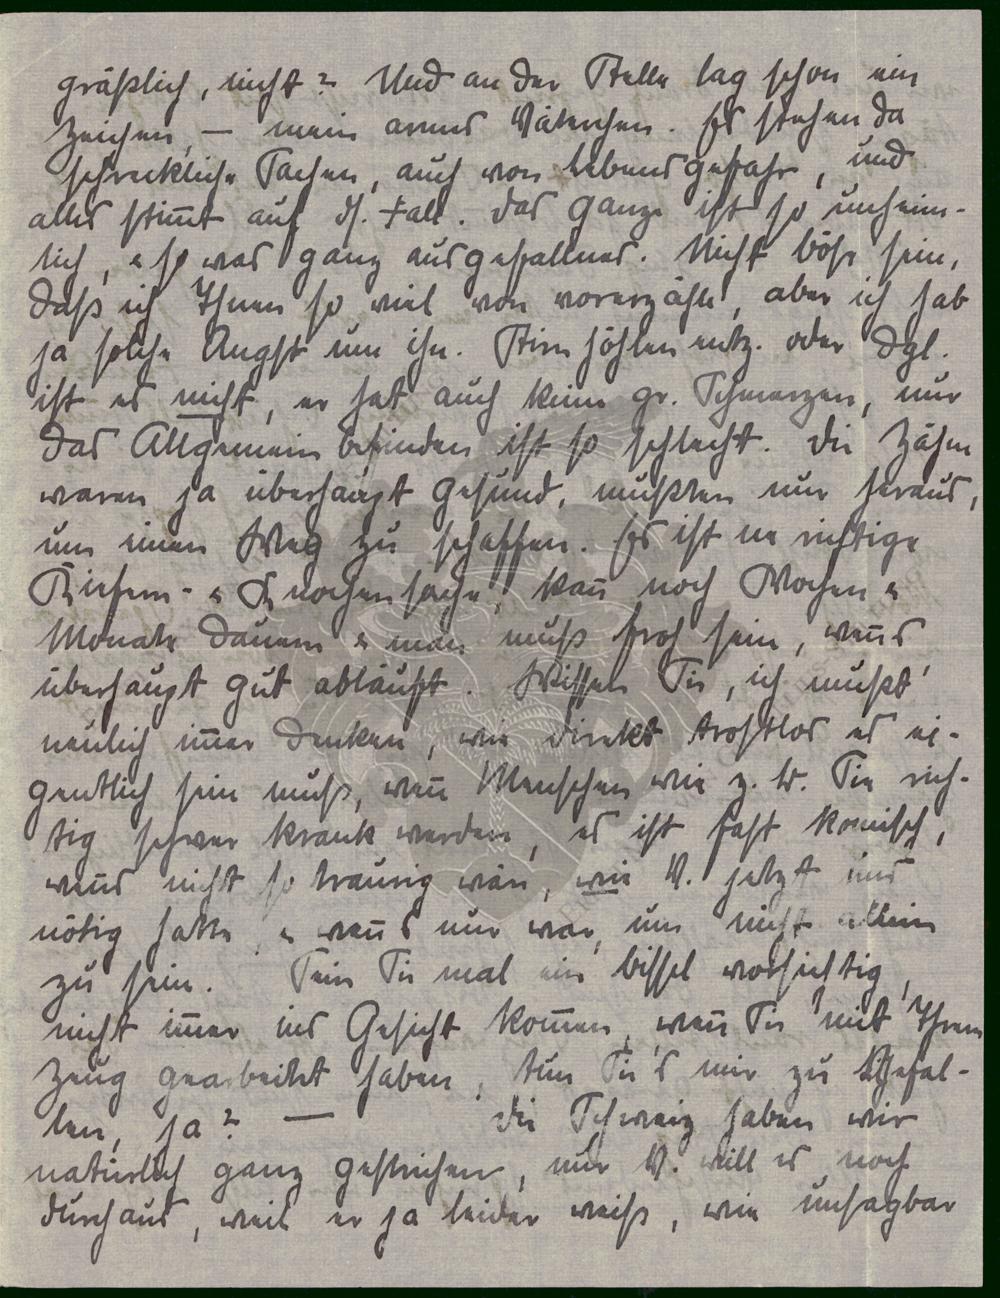 gräßlich, nicht? Und an der Stelle lag schon ein
Zeichen, — mein armes Väterchen. Es stehen da
schreckliche Sachen, auch von Lebensgefahr, und
alles stim̅t auf ds. Fall. Das Ganze ist so unheim-
lich, & so was ganz ausgefallnes. Nicht böse sein,
daß ich Ihnen so viel von vorerzähle, aber ich hab
ja solche Angst um ihn. Stirnhöhlenentz. oder dgl.
ist es nicht, er hat auch keine gr. Schmerzen, nur
das Allgemeinbefinden ist so schlecht. Die Zähne
waren ja überhaupt gesund, mußten nur heraus,
um einen Weg zu schaffen. Es ist ne richtige
Kiefern- & Knochensache, kan̅ noch Wochen &
Monate dauern & man muß froh sein, wen̅s
überhaupt gut abläuft. Wissen Sie, ich mußt'
neulich im̅er denken, wie direkt trostlos es ei-
gentlich sein muß, wen̅ Menschen wie z. B. Sie rich-
tig schwer krank werden, es ist fast komisch,
wen̅s nicht so traurig wär, wie V. jetzt uns
nötig hatte, & wen̅s nur war, um nicht allein
zu sein. Sein Sie mal ein bissel vorsichtig,
nicht im̅er ins Gesicht kom̅en, wen̅ Sie mit Ihrem
Zeug gearbeitet haben, tun Sie's mir zu Gefal-
len, ja? — Die Schweiz haben wir
natürlich ganz gestrichen, nur V. will es noch
durchaus, weil er ja leider weiß, wie unsagbar